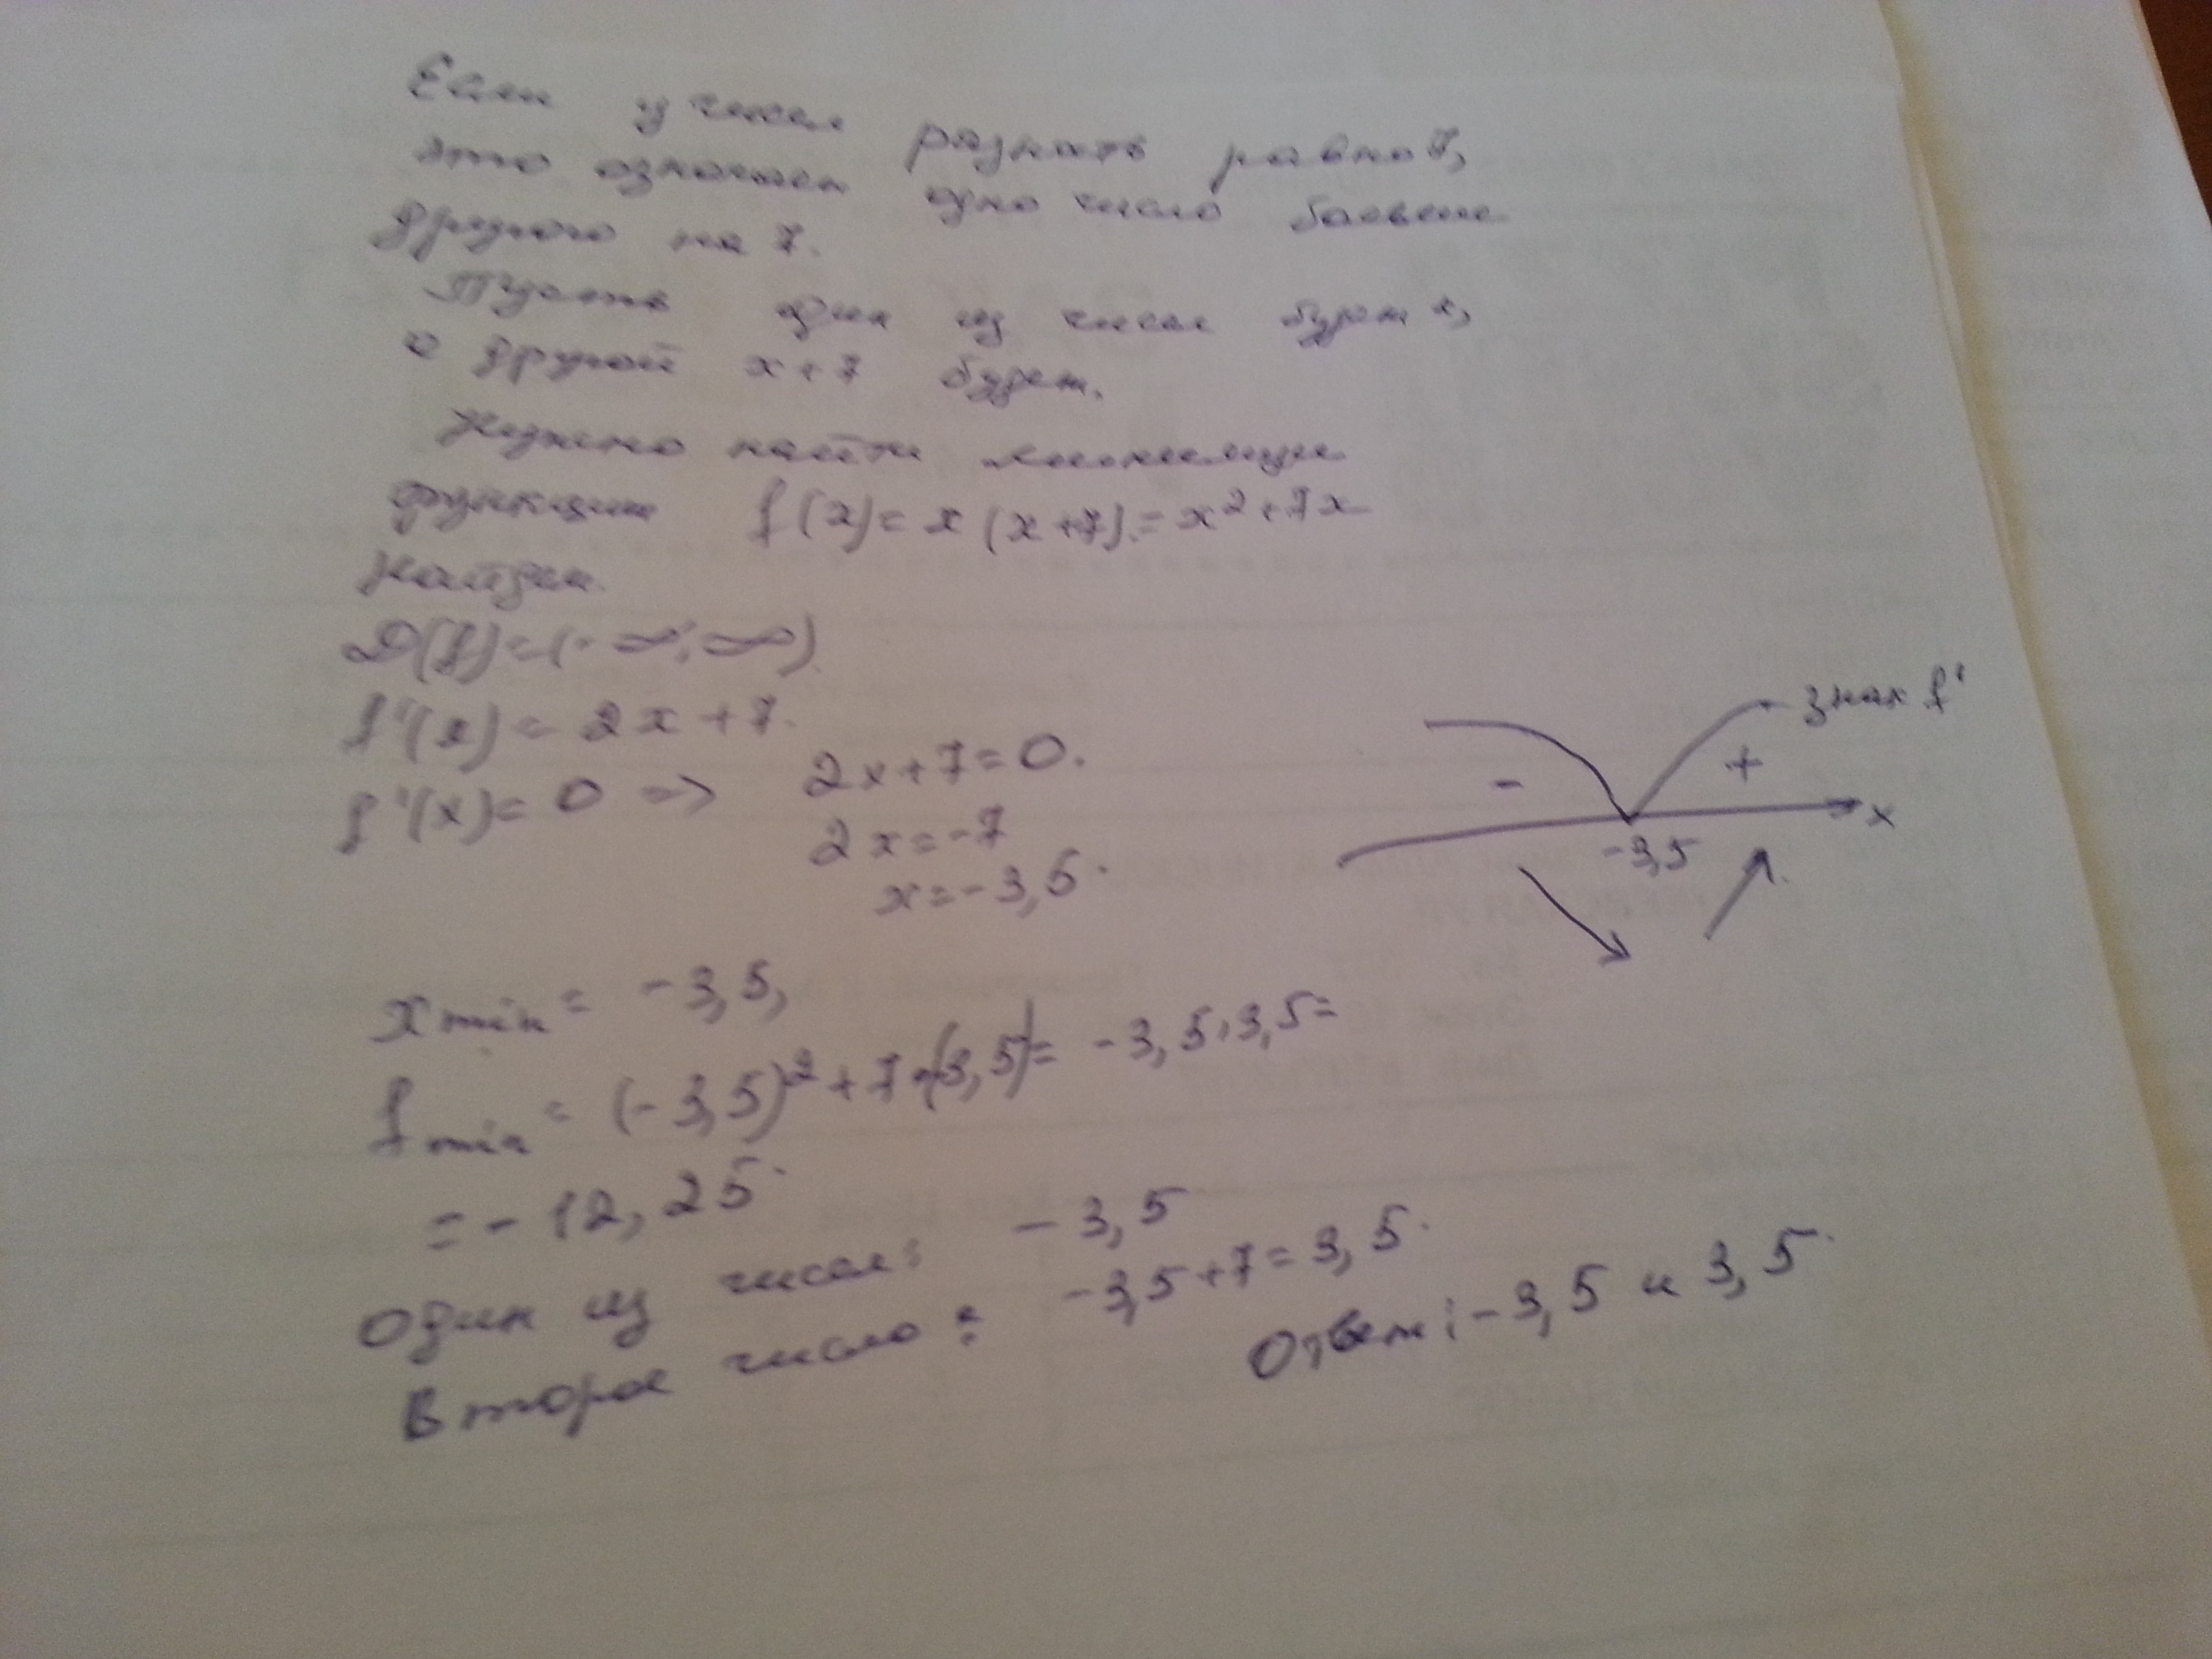 Если из чисел разность равно 7,
это означает одно число больше
другого на 7.
Пусть один из чисел будет x,
а другой x+7 будет.
Нужно найти минимум
функции f(x)= x(x+7)=x²+7x
Найдем.
D(f)=(-∞;∞).
f'(x)=2x+7.
f'(x)=0 => 2x+7=0.
2x=-7
x=-3,5.
знак f'
- +
-3,5 x
xmin= -3,5,
fmin= (-3,5)²+7·(-3,5)= -3,5·3,5=
=-12,25.
Один из чисел: -3,5
Второе число: -3,5+7=3,5.
Ответ: -3,5 и 3,5.